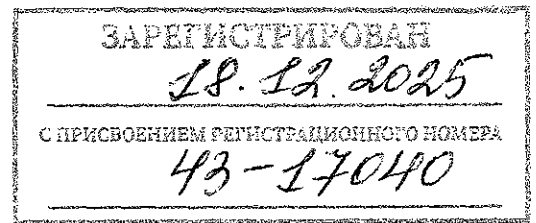 ЗАРЕГИСТРИРОВАН
18.12.2025
С ПРИСВОЕНИЕМ РЕГИСТРАЦИОННОГО НОМЕРА
43-17040